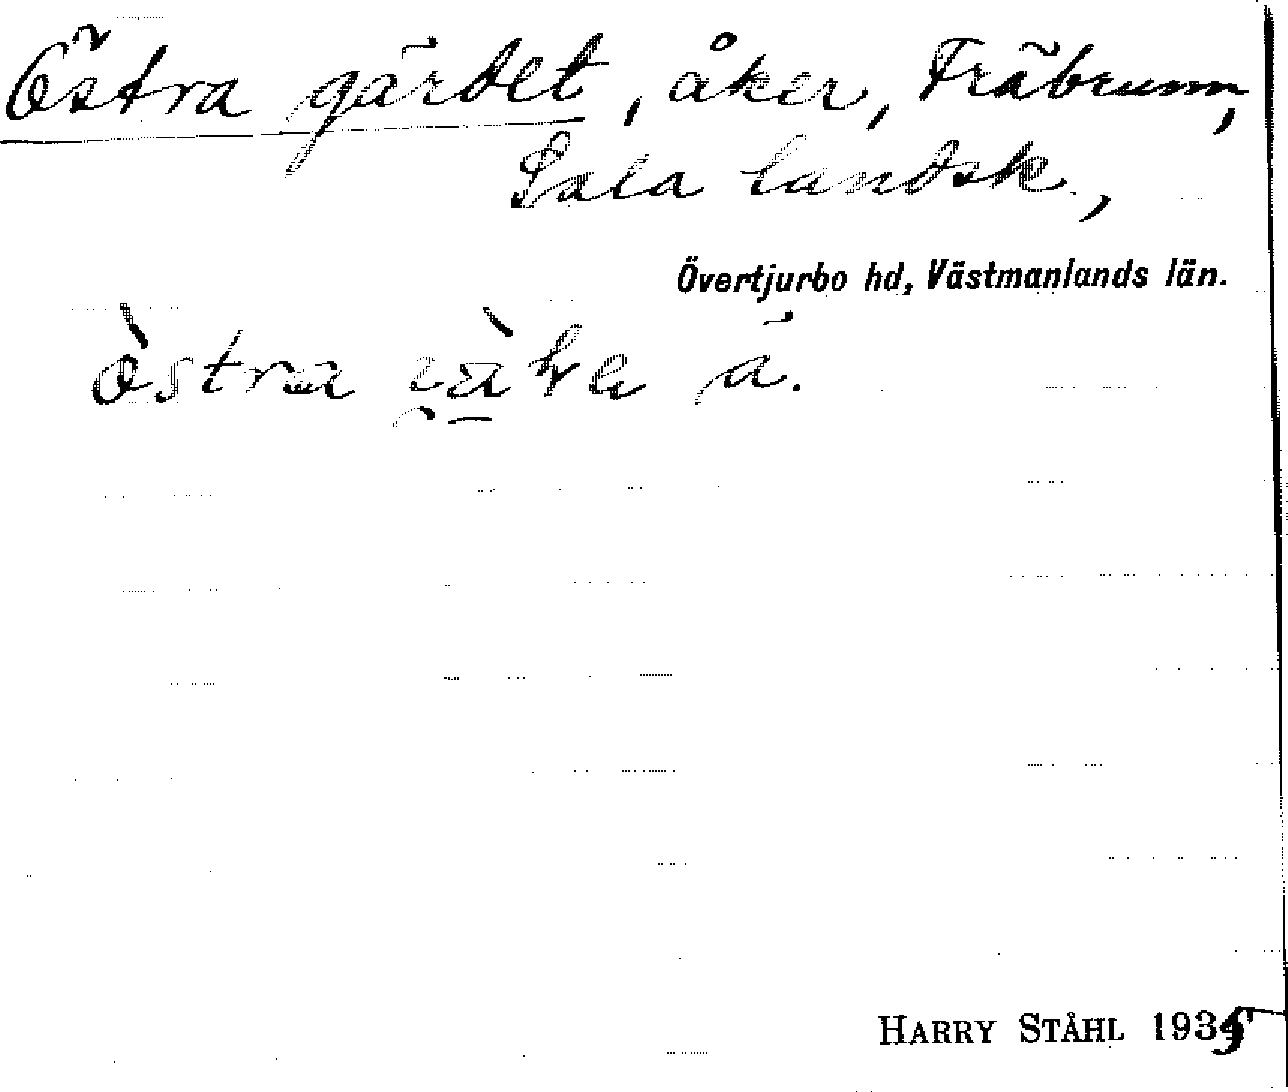 Östra gärdet, åker, Träbrunn,
Sala landsk.,
Övertjurbo hd, Västmanlands län.
òstra å.
HARRY STÅHL 1935